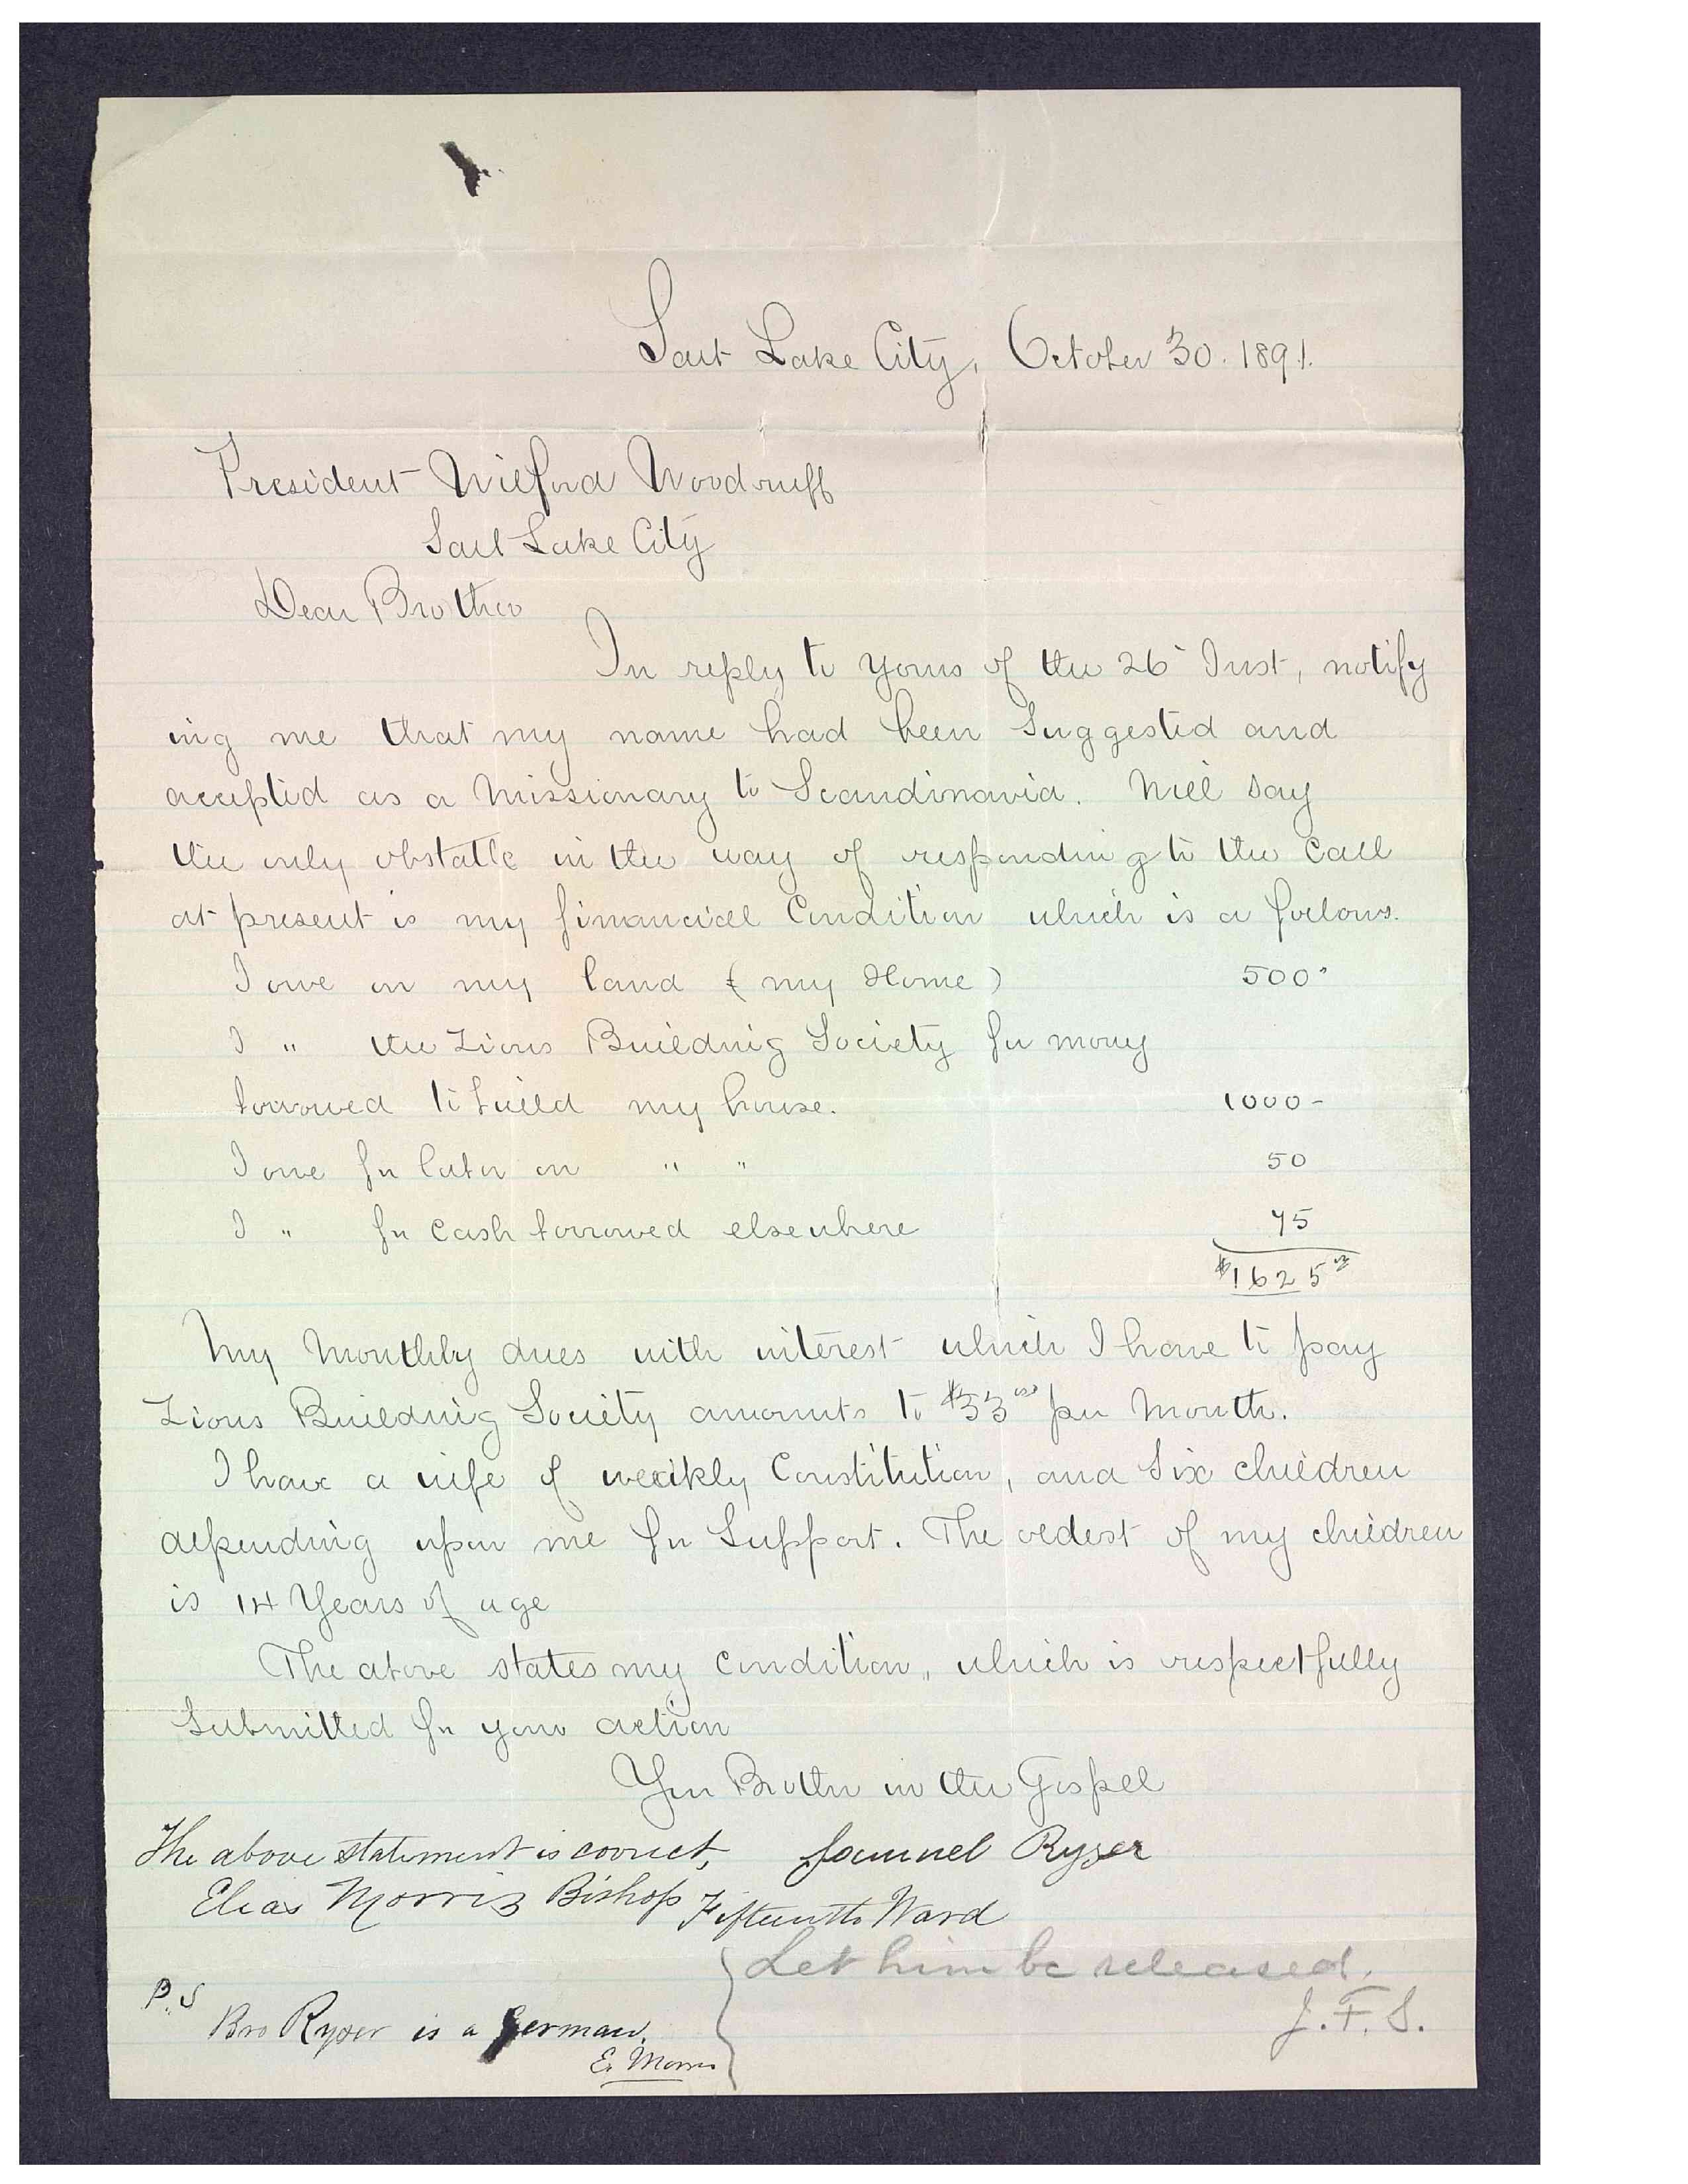 Salt Lake City, October 30. 1891.
President Wilford Woodruff
Salt Lake City
Dear Brother
In reply to yours of the 26" Inst, notify
ing me that my name had been Suggested and
accepted as a Missionary to Scandinavia. Will say
the only obstacle in the way of responding to the Call
at present is my financiall Condition which is as follows.
I owe on my land ( my Home ) 500"
I " the Zions Building Society for money
borrowed to build my house. 1000-
I owe for labor on " " 50
I " for Cash borrowed elsewhere 75
$1625
My Monthly dues with interest which I have to pay
Zions Building Society amounts to $33 00 per Month.
I have a wife of weakly Constitution, and Six children
depending upon me for Support. The oldest of my children
is 14 Years of age
The above states my Condition, which is respectfully
Submitted for your action
Your Brother in the Gospel
The above statement is correct, Samuel Ryser
Elias Morris Bishop Fifteenth Ward
Let him be released.
J. F. S.
P.S
Bro Ryser is a German.
E. Morris